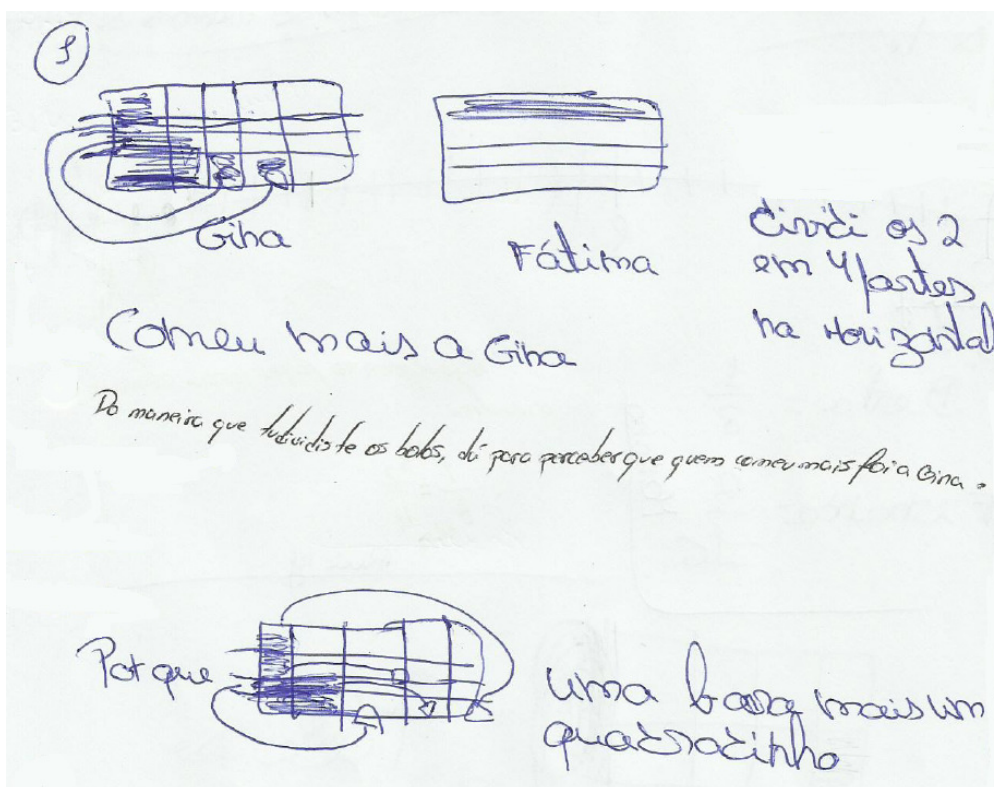 1
Gina
Fátima
dividi os 2
em 4 partes
na Horizontal
Comeu mais a Gina
Da maneira que tu dividiste os bolos, dá para perceber que quem comeu mais foi a Gina.
Porque
uma barra mais um
quadradinho